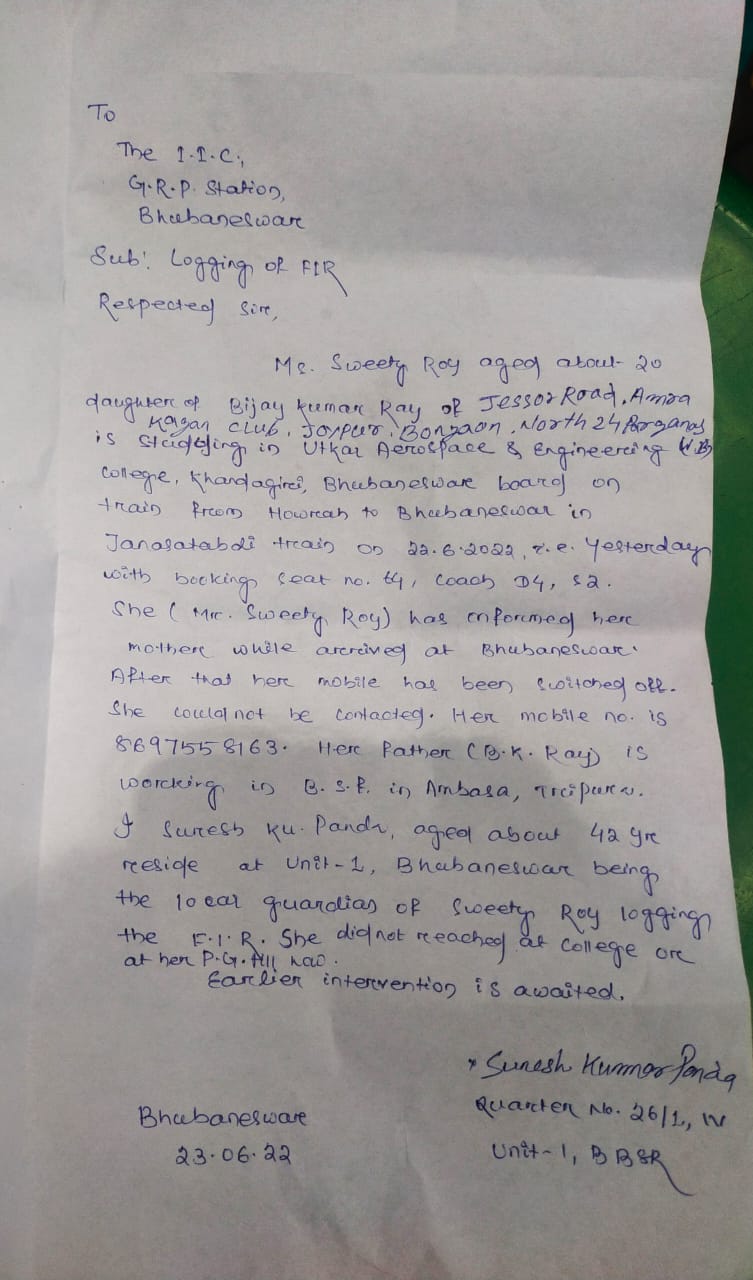 To
The I.I.C.,
G.R.P. Station,
Bhubaneswar
Sub: Logging of FIR
Respected Sir,
Ms. Sweety Roy aged about 20
daughter of Bijay Kumar Ray of Jessor Road, Amra
Kagan Club, Joypur, Bongaon, North 24 Parganas
is studying in Utkal Aerospace & Engineering W.B
College, Khandagiri, Bhubaneswar board on
train from Howrah to Bhubaneswar in
Janasatabdi train on 22.6.2022, i.e. Yesterday
with booking seat no. 64, Coach D4, S2.
She ( Mr. Sweety Roy) has informed her
mother while arrived at Bhubaneswar.
After that her mobile has been switched off.
She could not be contacted. Her mobile no. is
8697558163. Her Father (B.K. Ray) is
working in B.S.F. in Ambasa, Tripura.
I Suresh Ku. Panda, aged about 42 yr
reside at Unit-1, Bhubaneswar being
the local guardian of Sweety Roy logging
the F.I.R. She did not reached at College or
at her P.G. till nao.
Earlier intervention is awaited.
Suresh Kumar Panda
Quarter No. 26/1, IV
Unit-1, BBSR
Bhubaneswar
23.06.22